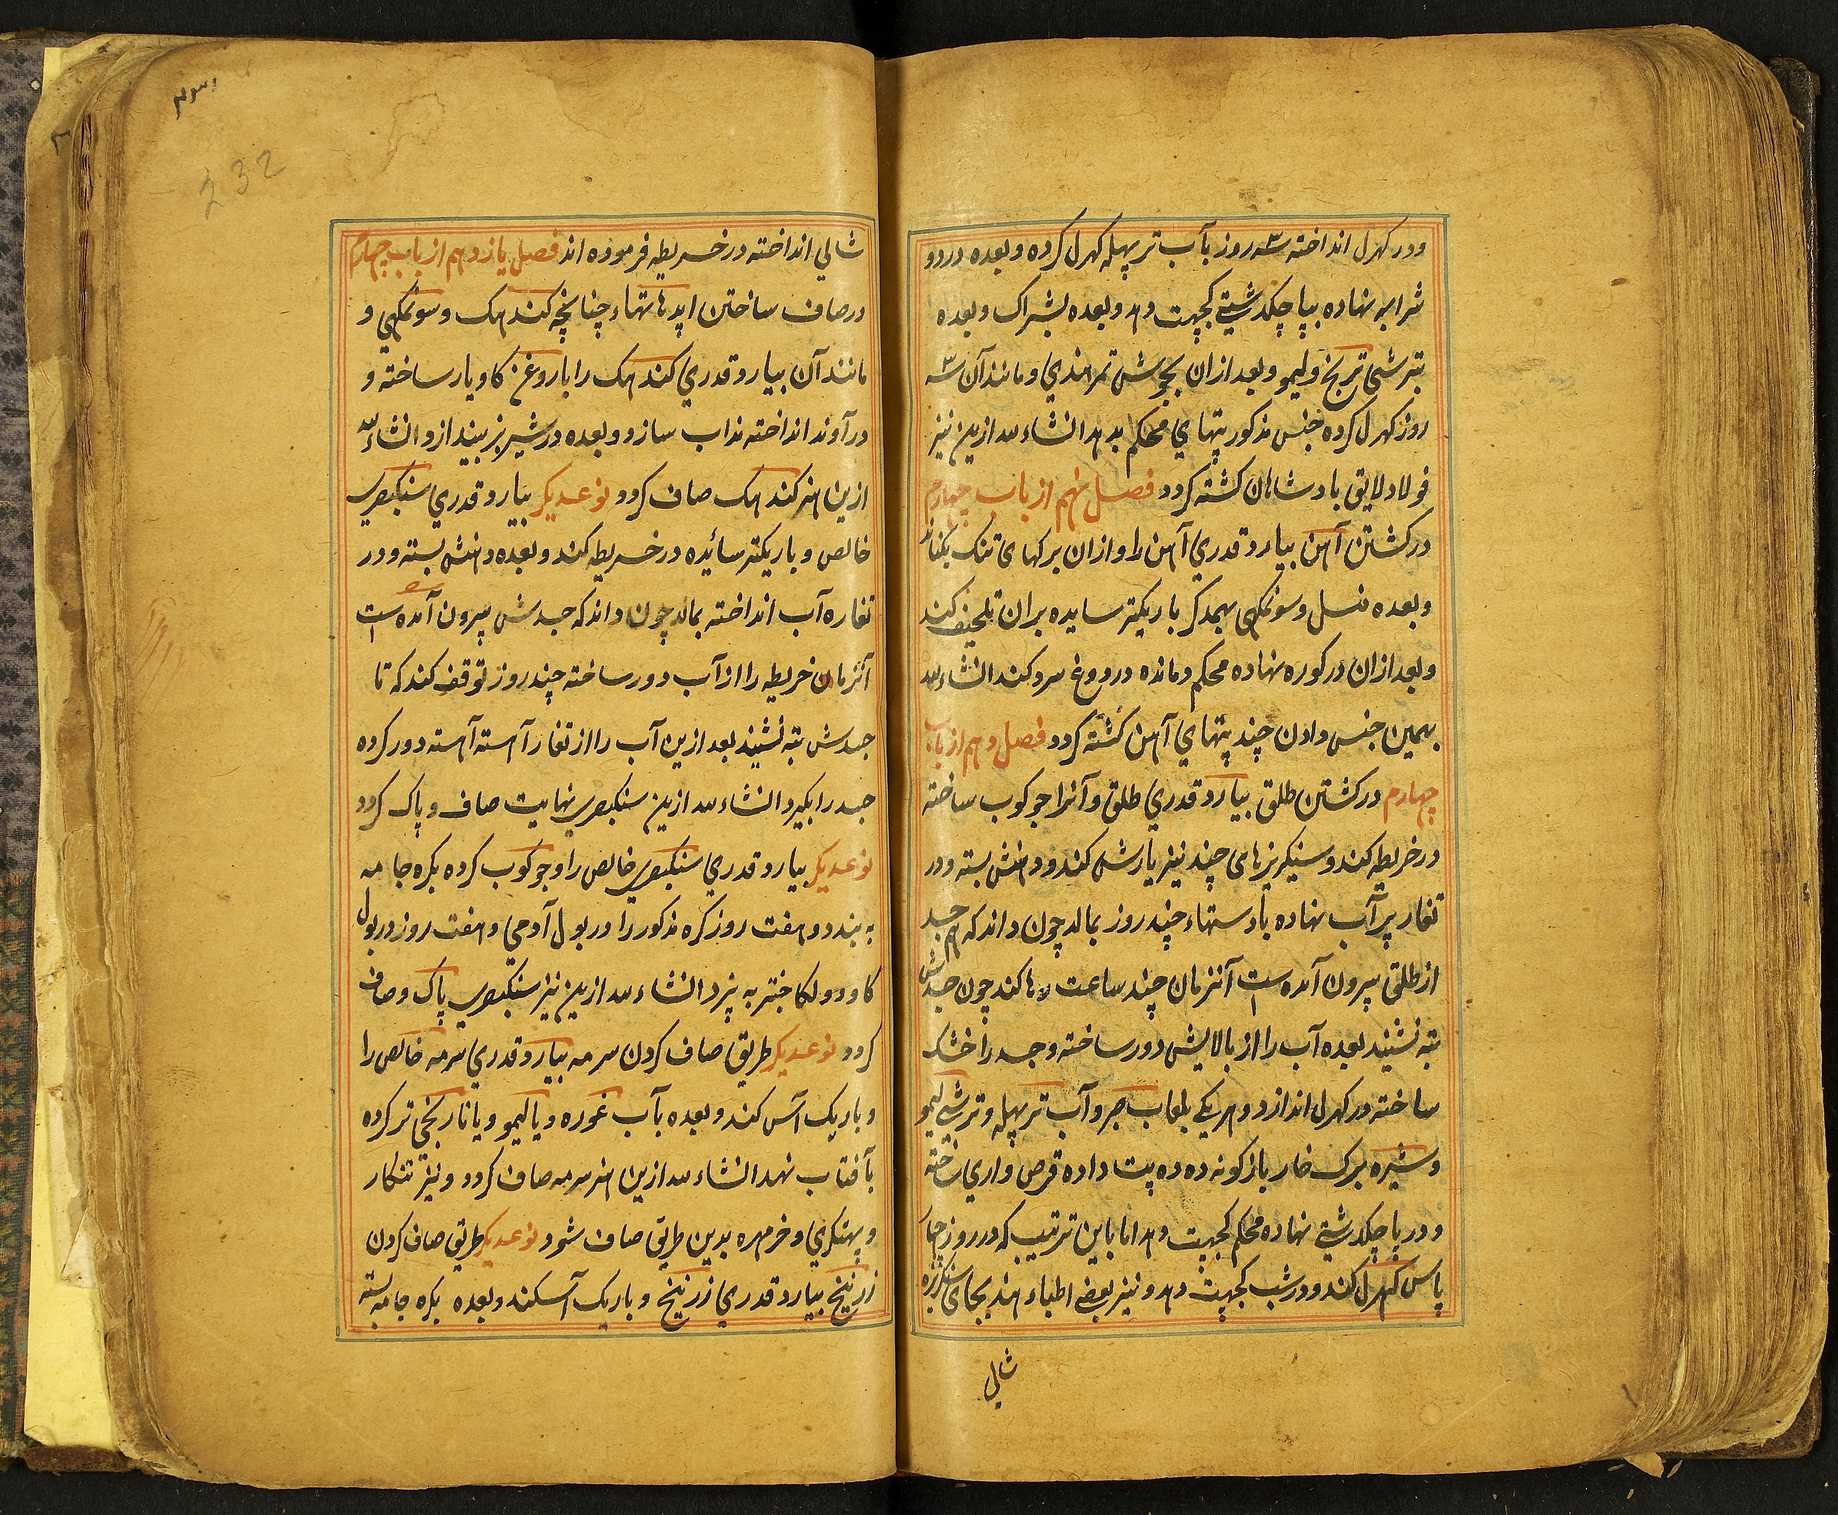 ودر کهرل انداخته سه روز بآب تر پهله کهرل کرده و بعده در دو
شرابه نهاده بپاچکدشتی کجپت دهد و بعده بشراک و بعده
بترشی ترنج و لیمو و بعد ازان بجوش تمرهندی و مانند آن سه
روز کهرل کرده جنس مذکور پتهای محکم بدهد انشاءالله ازین نیز
فولاد لایق بادشاهان کشته کردد فصل نهم از باب چهارم
در کشتن آهن بیارد قدری آهن را و ازان برکهای تنک بکند
و بعده نسل و سونمکهی بهمدکر باریکتر سایده بران تلحیف کند
و بعد ازان در کوره نهاده محکم دمانده در دوغ سرد کند انشاءالله
بهمین جنس دادن چند پتهای آهن کشته کردد فصل دهم از باب
چهارم در کشتن طلق بیارد قدری طلق و آنرا جوکوب ساخته
در خریطه کند و سنکریزهای چند نیز یارش کند و دهنش بسته و در
تغار پر آب نهاده بادستهاء چند روز بمالد چون داند که هم جسد
از طلق بیرون آمده است آنزمان چند ساعت رها کند چون جسدش
بته نشیند بعده آب را از بالایش دور ساخته و جسد را خشک
ساخته در کهرل اندازد و هر یکی بلعاب صبر و آب تر پهله و ترشی لیمو
و شیره برک خار بازکونه ده ده پت داده قرص واری ساخته
و در پاچکدشتی نهاده محکم کجپت دهد اما باین ترتیب که در روز چهار
پاس کهرل کند و در شب کجپت دهد و نیز بعضی اطباء هند بجای سنکریزه
شالی
شالی انداخته در خریطه فرموده اند فصل یازدهم از باب چهارم
در صاف ساختن اپدهاتهاء چنانچه کندهک و سونمکهی و
مانند آن بیارد قدری کندهک را با روغن کاو یار ساخته و
در آوند انداخته مذاب سازد و بعده در شیر بز بیندازد انشاءالله
ازین هنر کندهک صاف کردد نوعدیکر بیارد قدری سنکبصری
خالص و باریکتر سائیده در خریطه کند و بعده دهنش بسته و در
تغاره آب انداخته بمالد چون داند که جسدش بیرون آمده است
آنزمان خریطه را از آب دور ساخته چند روز توقف کند که تا
جسدش بته نشیند بعد ازین آب را از تغار آهسته آهسته دور کرده
جسد را بکیرد انشاءالله ازین سنکبصری نهایت صاف و پاک کردد
نوعدیکر بیارد قدری سنکبصری خالص را و جوکوب کرده بکره جامه
به بندد و هفت روز کره مذکور را در بول آدمی و هفت روز در بول
کاو دولکا جنتر به پزد انشاءالله ازین نیز سنکبصری پاک و صاف
کردد نوعدیکر طریق صاف کردن سرمه بیارد قدری سرمه خالص را
و باریک آس کند و بعده بآب غوره و یا لیمو و یا نارنجی تر کرده
بآفتاب نهد انشاءالله ازین هنر سرمه صاف کردد و نیز تنکار
و پهتکری و خرمهره بدین طریق صاف شود نوعدیکر طریق صاف کردن
زرنیخ بیارد قدری زرنیخ و باریک آسکند و بعده بکره جامه بسته
232